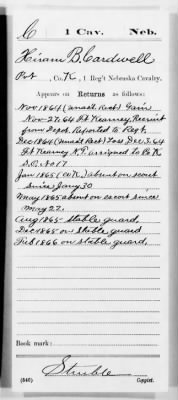 C 1 Cav. Neb.
Hiram B. Cardwell
Pvt, Co. K, 1 Reg't Nebraska Cavalry.
Appears on Returns as follows:
Nov 1864 (unas'd Rect) Gain
Nov. 27, 64 Ft Kearney, Recruit
from Depot. Reported to Regt.
Dec 1864 (unasd Rect) Loss Dec. 3, 64
Ft Kearney N.T. assigned to Co K
S.O. 17
Jan 1865 (Co K.) absent on escort
since Jany 30
May 1865 absent on escort since
May 22.
Aug 1865 - stable guard,
Dec 1865 on stable guard
Feb 1866 on stable guard,
Book mark:
Struble
(640) Copyist.